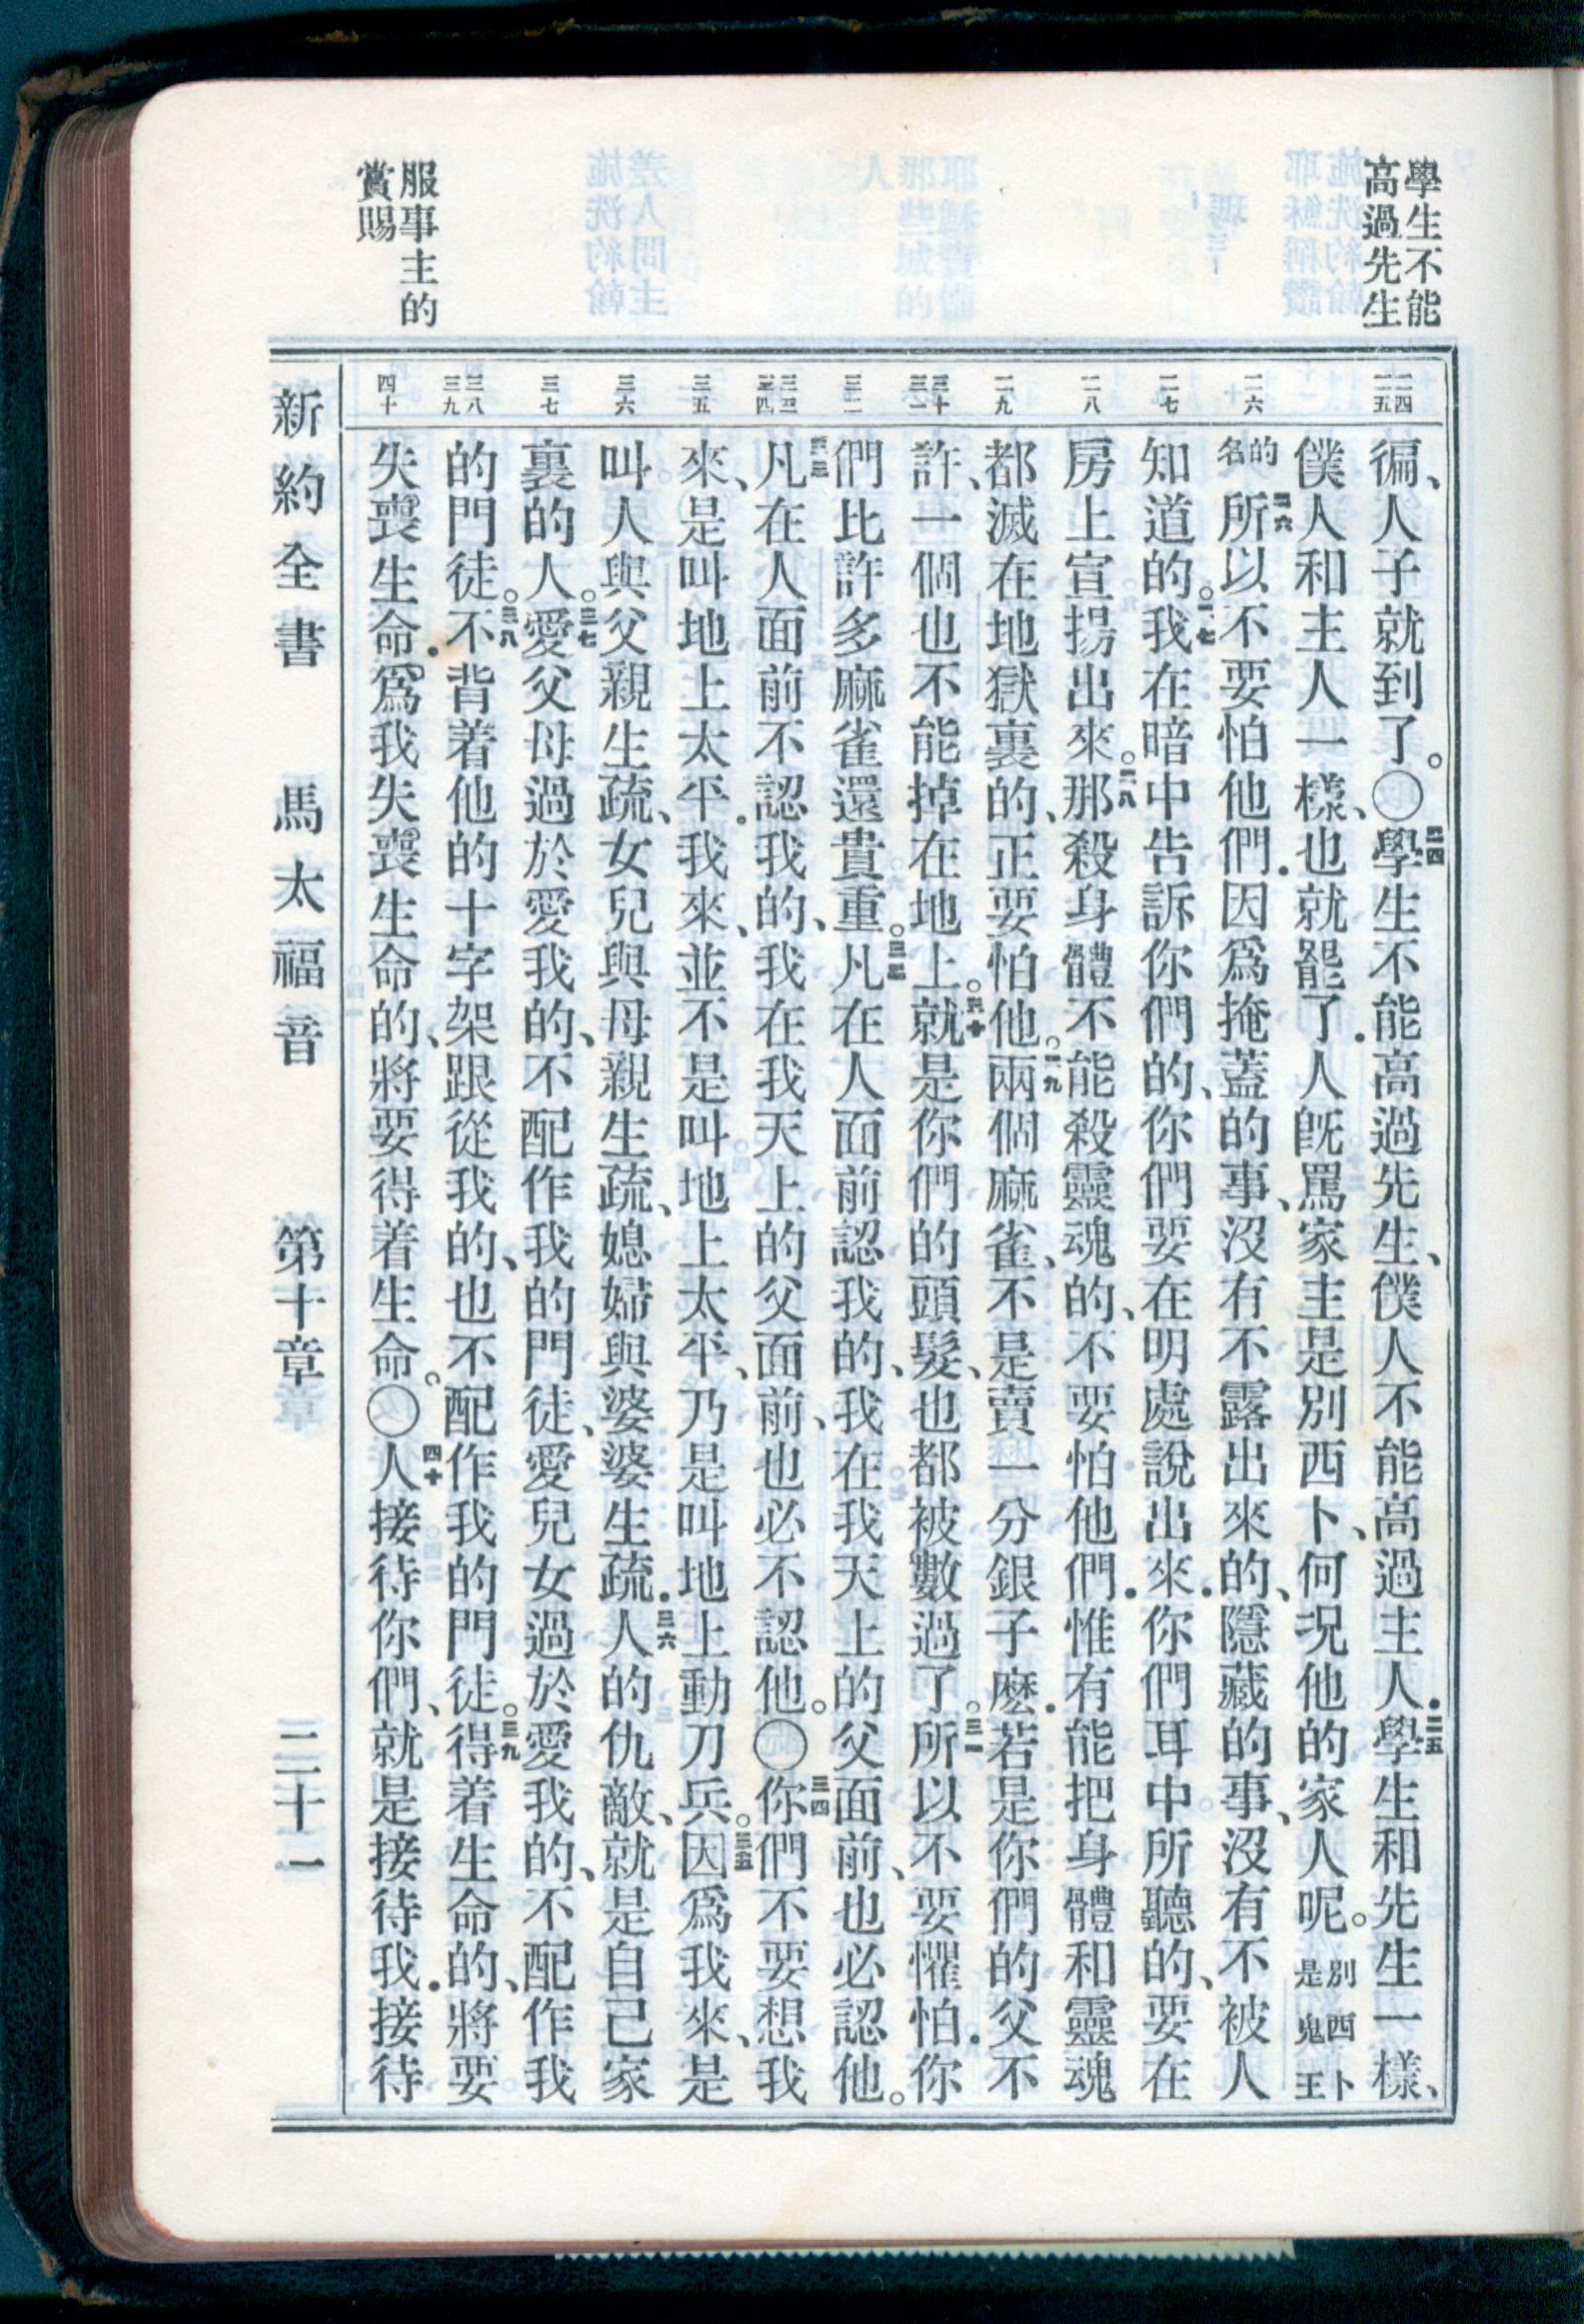 學生不能
高過先生
服事主的
賞賜
二四 二五
二六
二七
二八
二九
三十 三一
三二
三三 三四
三五
三六
三七
三八 三九
四十
徧、人子就到了。〇二四學生不能高過先生、僕人不能高過主人.二五學生和先生一樣、
僕人和主人一樣、也就罷了.人旣罵家主是別西卜、何况他的家人呢。別西卜是鬼王
的名二六所以不要怕他們.因爲掩蓋的事、沒有不露出來的、隱藏的事、沒有不被人
知道的。二七我在暗中告訴你們的、你們要在明處說出來.你們耳中所聽的、要在
房上宣揚出來。二八那殺身體不能殺靈魂的、不要怕他們.惟有能把身體和靈魂
都滅在地獄裏的、正要怕他。二九兩個麻雀、不是賣一分銀子麽.若是你們的父不
許、一個也不能掉在地上。三十就是你們的頭髮、也都被數過了。三一所以不要懼怕.你
們比許多麻雀還貴重。三二凡在人面前認我的、我在我天上的父面前、也必認他。
三三凡在人面前不認我的、我在我天上的父面前、也必不認他。〇三四你們不要想我
來、是叫地上太平.我來、並不是叫地上太平、乃是叫地上動刀兵。三五因爲我來、是
叫人與父親生疏、女兒與母親生疏、媳婦與婆婆生疏.三六人的仇敵、就是自己家
裏的人。三七愛父母過於愛我的、不配作我的門徒、愛兒女過於愛我的、不配作我
的門徒。三八不背着他的十字架跟從我的、也不配作我的門徒。三九得着生命的、將要
失喪生命.爲我失喪生命的、將要得着生命。〇四十人接待你們、就是接待我.接待
新約全書 馬太福音 第十章 二十一